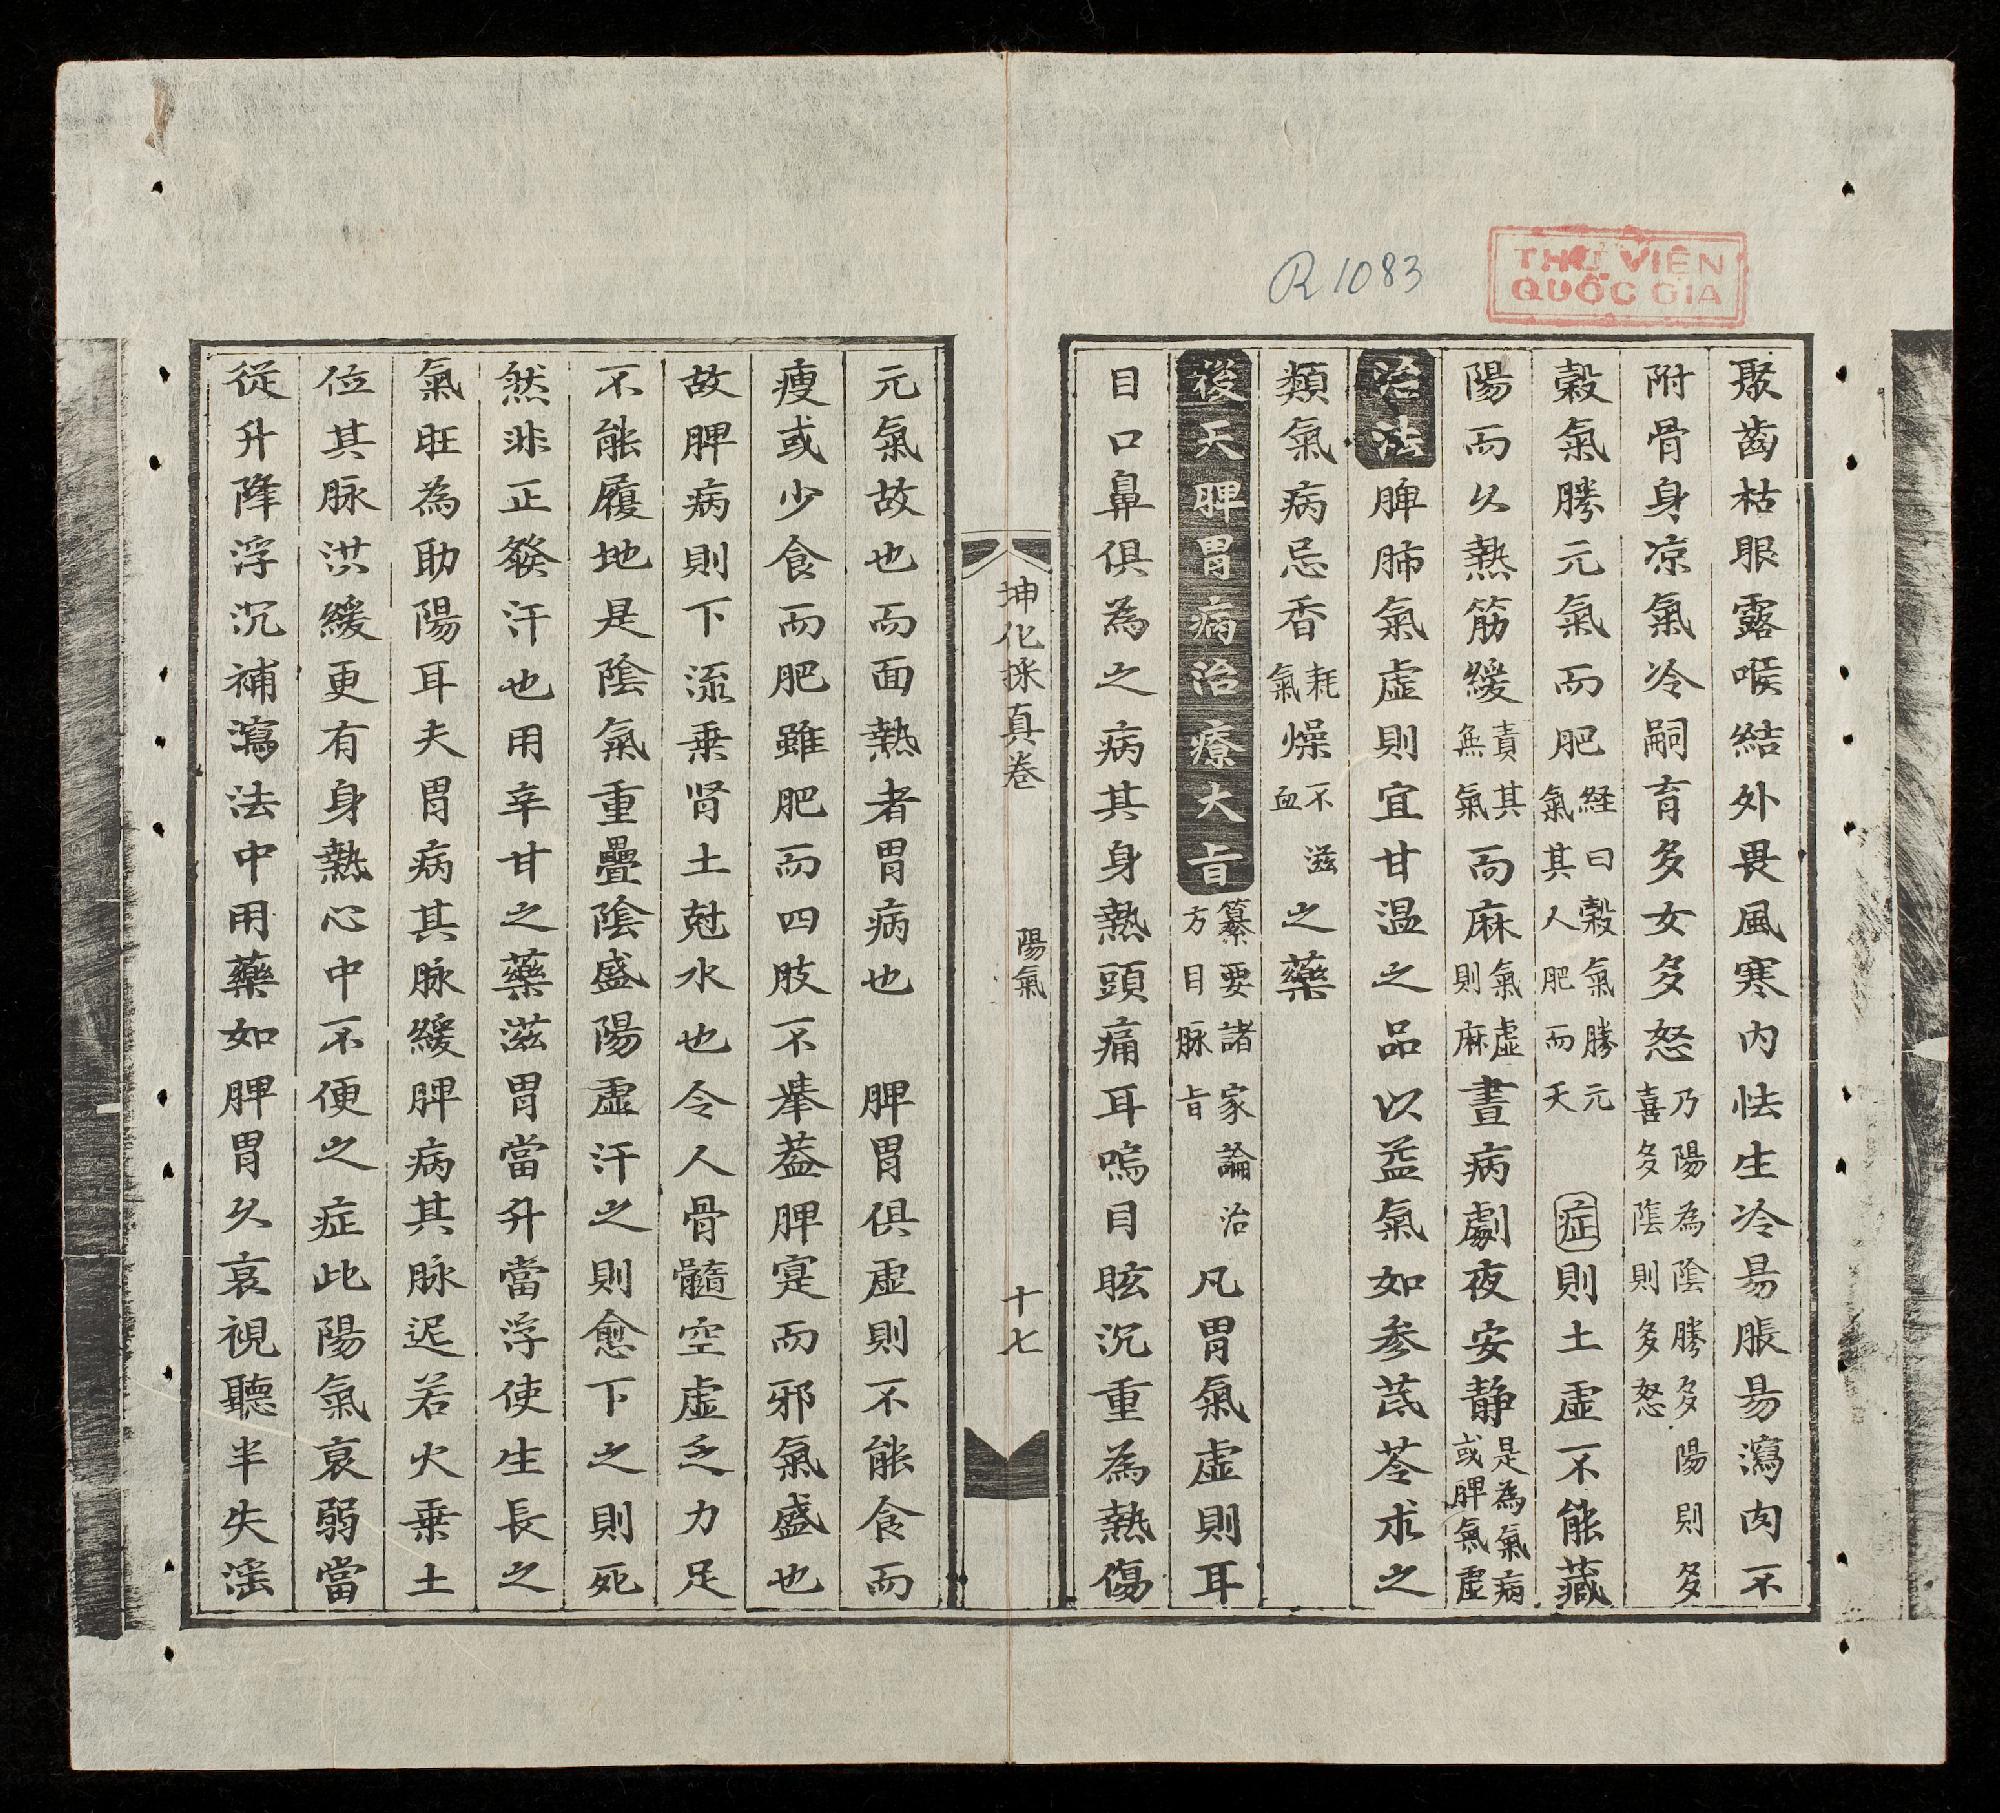 R 1083
THƯ VIỆN
QUỐC GIA
聚齒枯眼露喉結外畏風寒內怯生冷昜脹昜瀉肉不
附骨身凉氣冷嗣育多女多怒乃陽為陰勝多陽則多喜多陰則多怒
穀氣勝元氣而肥經曰穀氣勝元氣其人肥而夭 症則土虛不能藏
陽而久熱筋緩責其無氣而麻氣虛則麻晝病劇夜安静是為氣病或脾氣虛
治法脾肺氣虛則宜甘温之品以益氣如参芪苓朮之
類氣病忌香耗氣燥不滋血之藥
後天脾胃病治療大旨纂要諸家論治方目脉旨凡胃氣虛則耳
目口鼻俱為之病其身熱頭痛耳嗚目眩沉重為熱傷
坤化採真卷 陽氣 十七
元氣故也而面熱者胃病也 脾胃俱虛則不能食而
瘦或少食而肥雖肥而四肢不舉葢脾寔而邪氣盛也
故脾病則下流乗肾土尅水也令人骨髓空虛乏力足
不能履地是陰氣重疊陰盛陽虛汗之則愈下之則死
然非正發汗也用辛甘之藥滋胃當升當浮使生長之
氣旺為助陽耳夫胃病其脉緩脾病其脉遅若火乗土
位其脉洪緩更有身熱心中不便之症此陽氣衰弱當
從升降浮沉補瀉法中用藥如脾胃久衰視聽半失淫